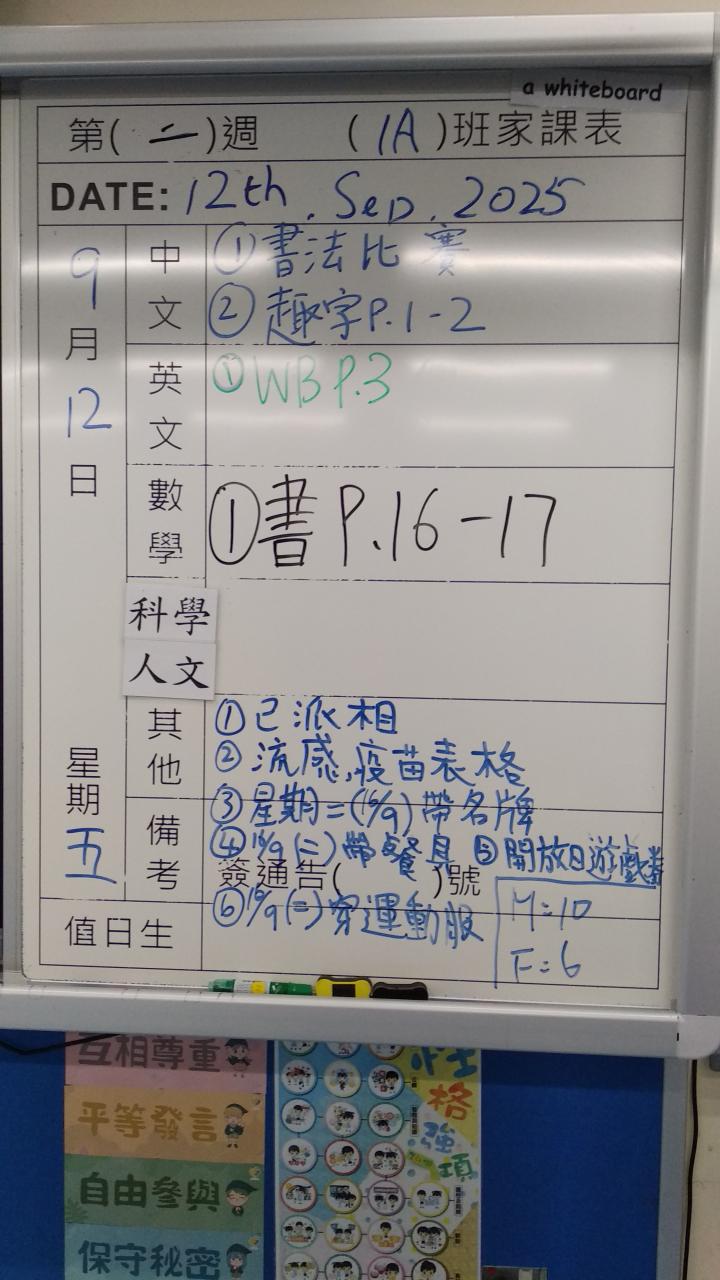 a whiteboard
第(二)週 (1A)班家課表
DATE: 12th. Sep. 2025
9月12日
星期五
中文
①書法比賽
②趣字P.1-2
英文
①WB P.3
數學
①書P.16-17
科學
人文
其他
①已派相
②流感疫苗表格
③星期二(16/9)帶名牌
備考
④16/9(二)帶餐具 ⑤開放日遊戲券
簽通告( )號
⑥16/9(二)穿運動服
M:10
F:6
值日生
互相尊重
平等發言
自由參與
保守秘密
性格強項